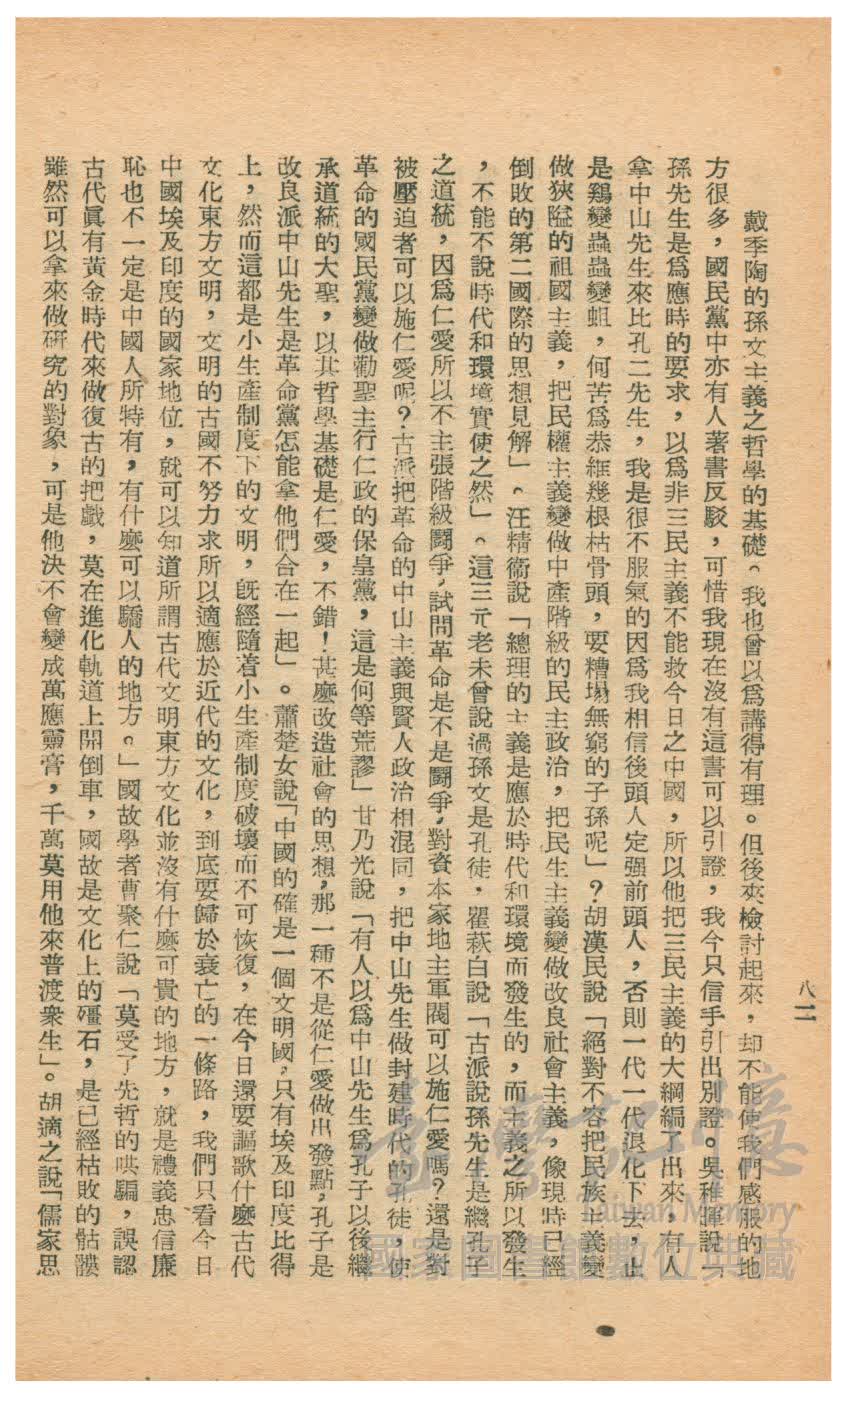 八二
戴季陶的孫文主義之哲學的基礎。我也曾以爲講得有理。但後來檢討起來，却不能使我們感服的地
方很多，國民黨中亦有人著書反駁，可惜我現在沒有這書可以引證，我今只信手引出別證。吳稚暉說「
孫先生是爲應時的要求，以爲非三民主義不能救今日之中國，所以他把三民主義的大綱編了出來，有人
拿中山先生來比孔二先生，我是很不服氣的因爲我相信後頭人定强前頭人，否則一代一代退化下去，止
是鷄變蟲蟲變蛆，何苦爲恭維幾根枯骨頭，要糟塲無窮的子孫呢」？胡漢民說「絕對不容把民族主義變
做狹隘的祖國主義，把民權主義變做中產階級的民主政治，把民生主義變做改良社會主義，像現時已經
倒敗的第二國際的思想見解」。汪精衞說「總理的主義是應於時代和環境而發生的，而主義之所以發生
，不能不說時代和環境實使之然」。這三元老未曾說過孫文是孔徒，瞿萩白說「古派說孫先生是繼孔子
之道統，因爲仁愛所以不主張階級鬪爭，試問革命是不是鬪爭，對資本家地主軍閥可以施仁愛嗎？還是對
被壓迫者可以施仁愛呢？古派把革命的中山主義與賢人政治相混同，把中山先生做封建時代的孔徒，使
革命的國民黨變做勸聖主行仁政的保皇黨，這是何等荒謬」甘乃光說「有人以爲中山先生爲孔子以後繼
承道統的大聖，以其哲學基礎是仁愛，不錯！甚麼改造社會的思想，那一種不是從仁愛做出發點，孔子是
改良派中山先生是革命黨怎能拿他們合在一起」。蕭楚女說「中國的確是一個文明國，只有埃及印度比得
上，然而這都是小生產制度下的文明，旣經隨着小生產制度破壞而不可恢復，在今日還要謳歌什麼古代
文化東方文明，文明的古國不努力求所以適應於近代的文化，到底要歸於衰亡的一條路，我們只看今日
中國埃及印度的國家地位，就可以知道所謂古代文明東方文化並沒有什麼可貴的地方，就是禮義忠信廉
恥也不一定是中國人所特有，有什麼可以驕人的地方。」國故學者曹聚仁說「莫受了先哲的哄騙，誤認
古代眞有黃金時代來做復古的把戲，莫在進化軌道上開倒車，國故是文化上的殭石，是已經枯敗的骷髏
雖然可以拿來做研究的對象，可是他決不會變成萬應靈膏，千萬莫用他來普渡衆生」。胡適之說「儒家思
臺灣記憶
Taiwan Memory
國家圖書館數位典藏